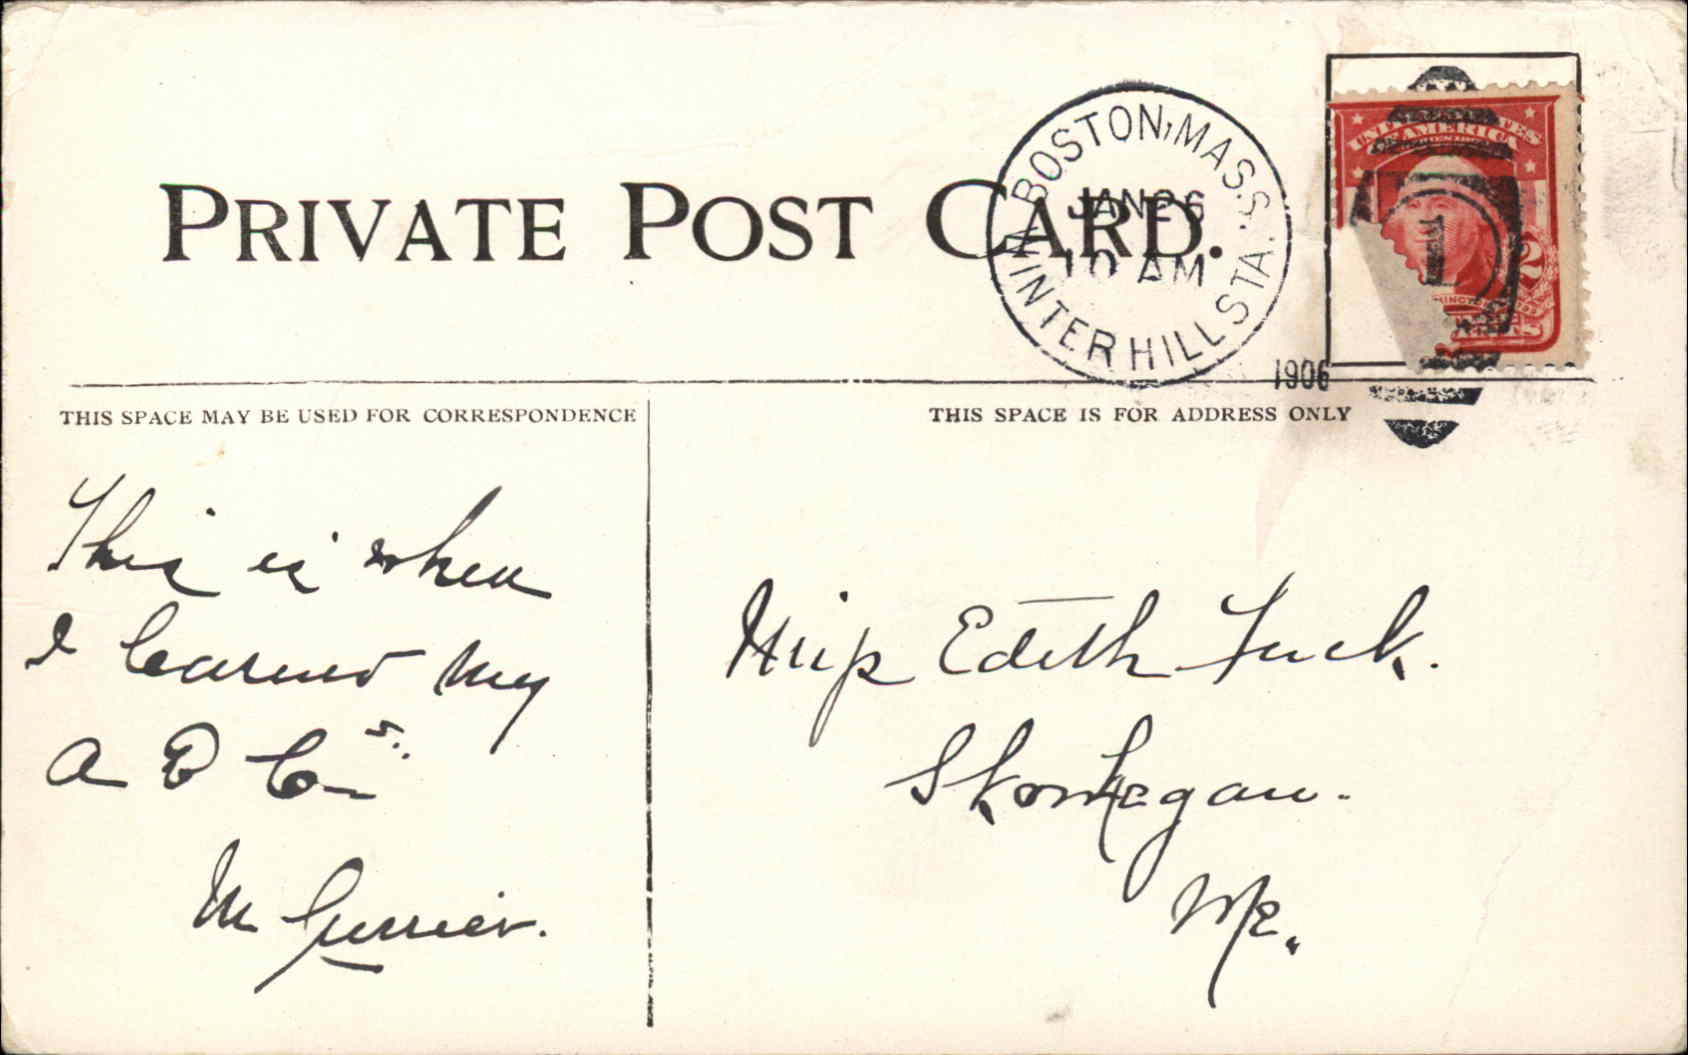 PRIVATE POST CARD.
BOSTON, MASS.
WINTER HILL STA.
JAN 26
10 AM
1906
UNITED STATES
OF AMERICA
2
1
THIS SPACE MAY BE USED FOR CORRESPONDENCE
THIS SPACE IS FOR ADDRESS ONLY
This is when
I learned my
A B C s.
M Gurrier.
Miss Edith Tuck.
Skowhegan.
Me.